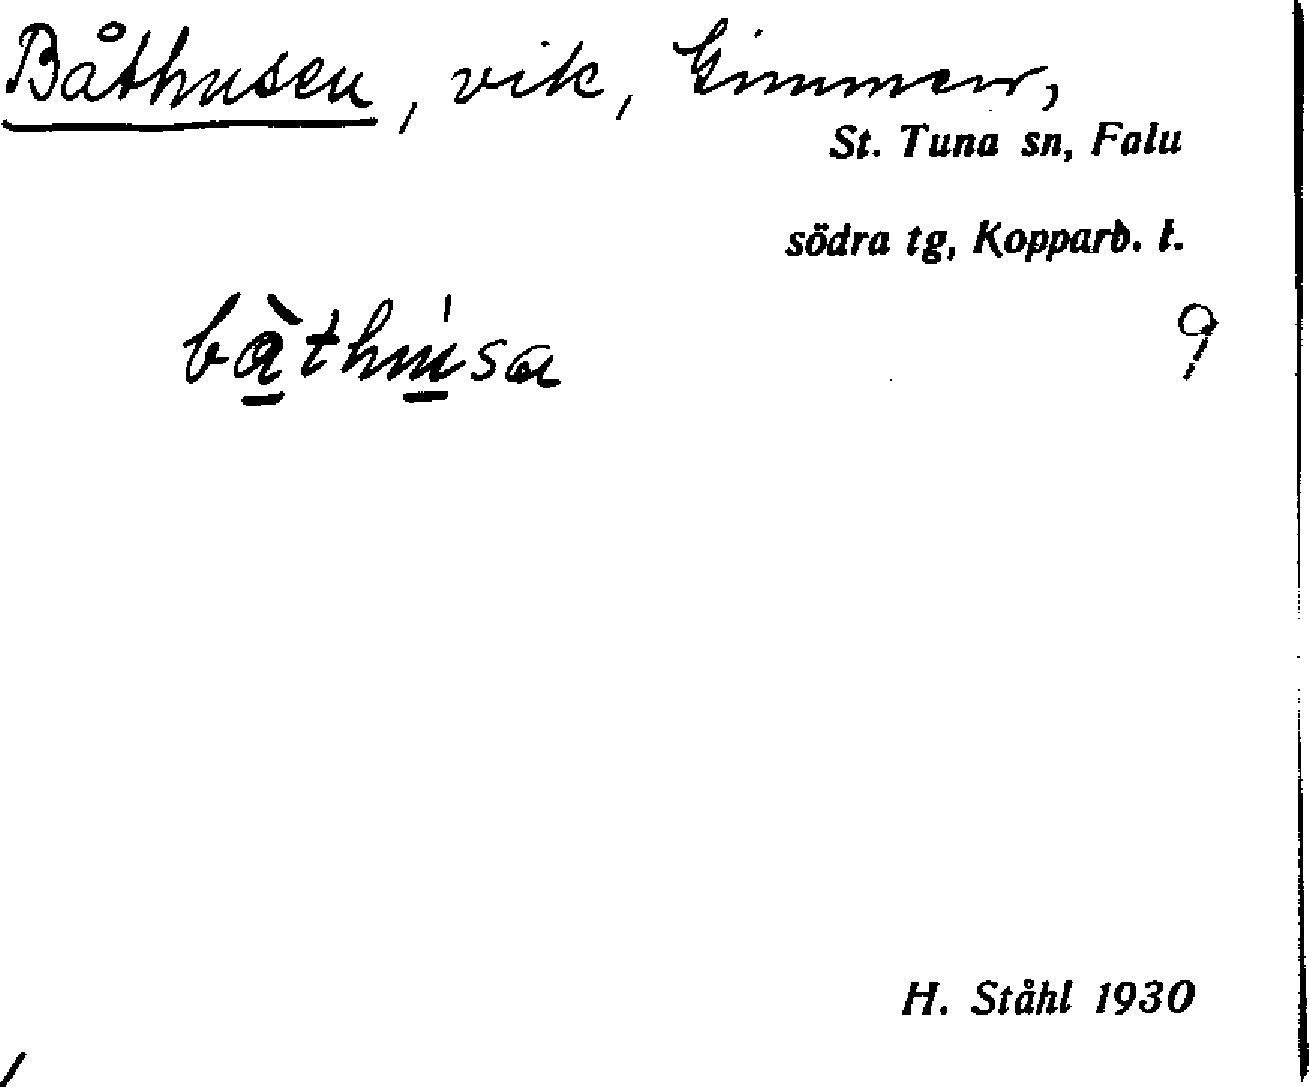 Båthusen, vik, Gimmen,
St. Tuna sn, Falu
södra tg, Kopparb. l.
bàthúsa
9
H. Ståhl 1930